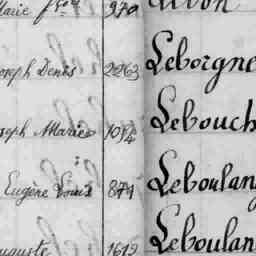 Marie 970
Joseph Denis 2263 Leborgne
Joseph Marie 1014 Lebouch
Eugène Louis 871 Leboulan
Auguste 1619 Leboulan